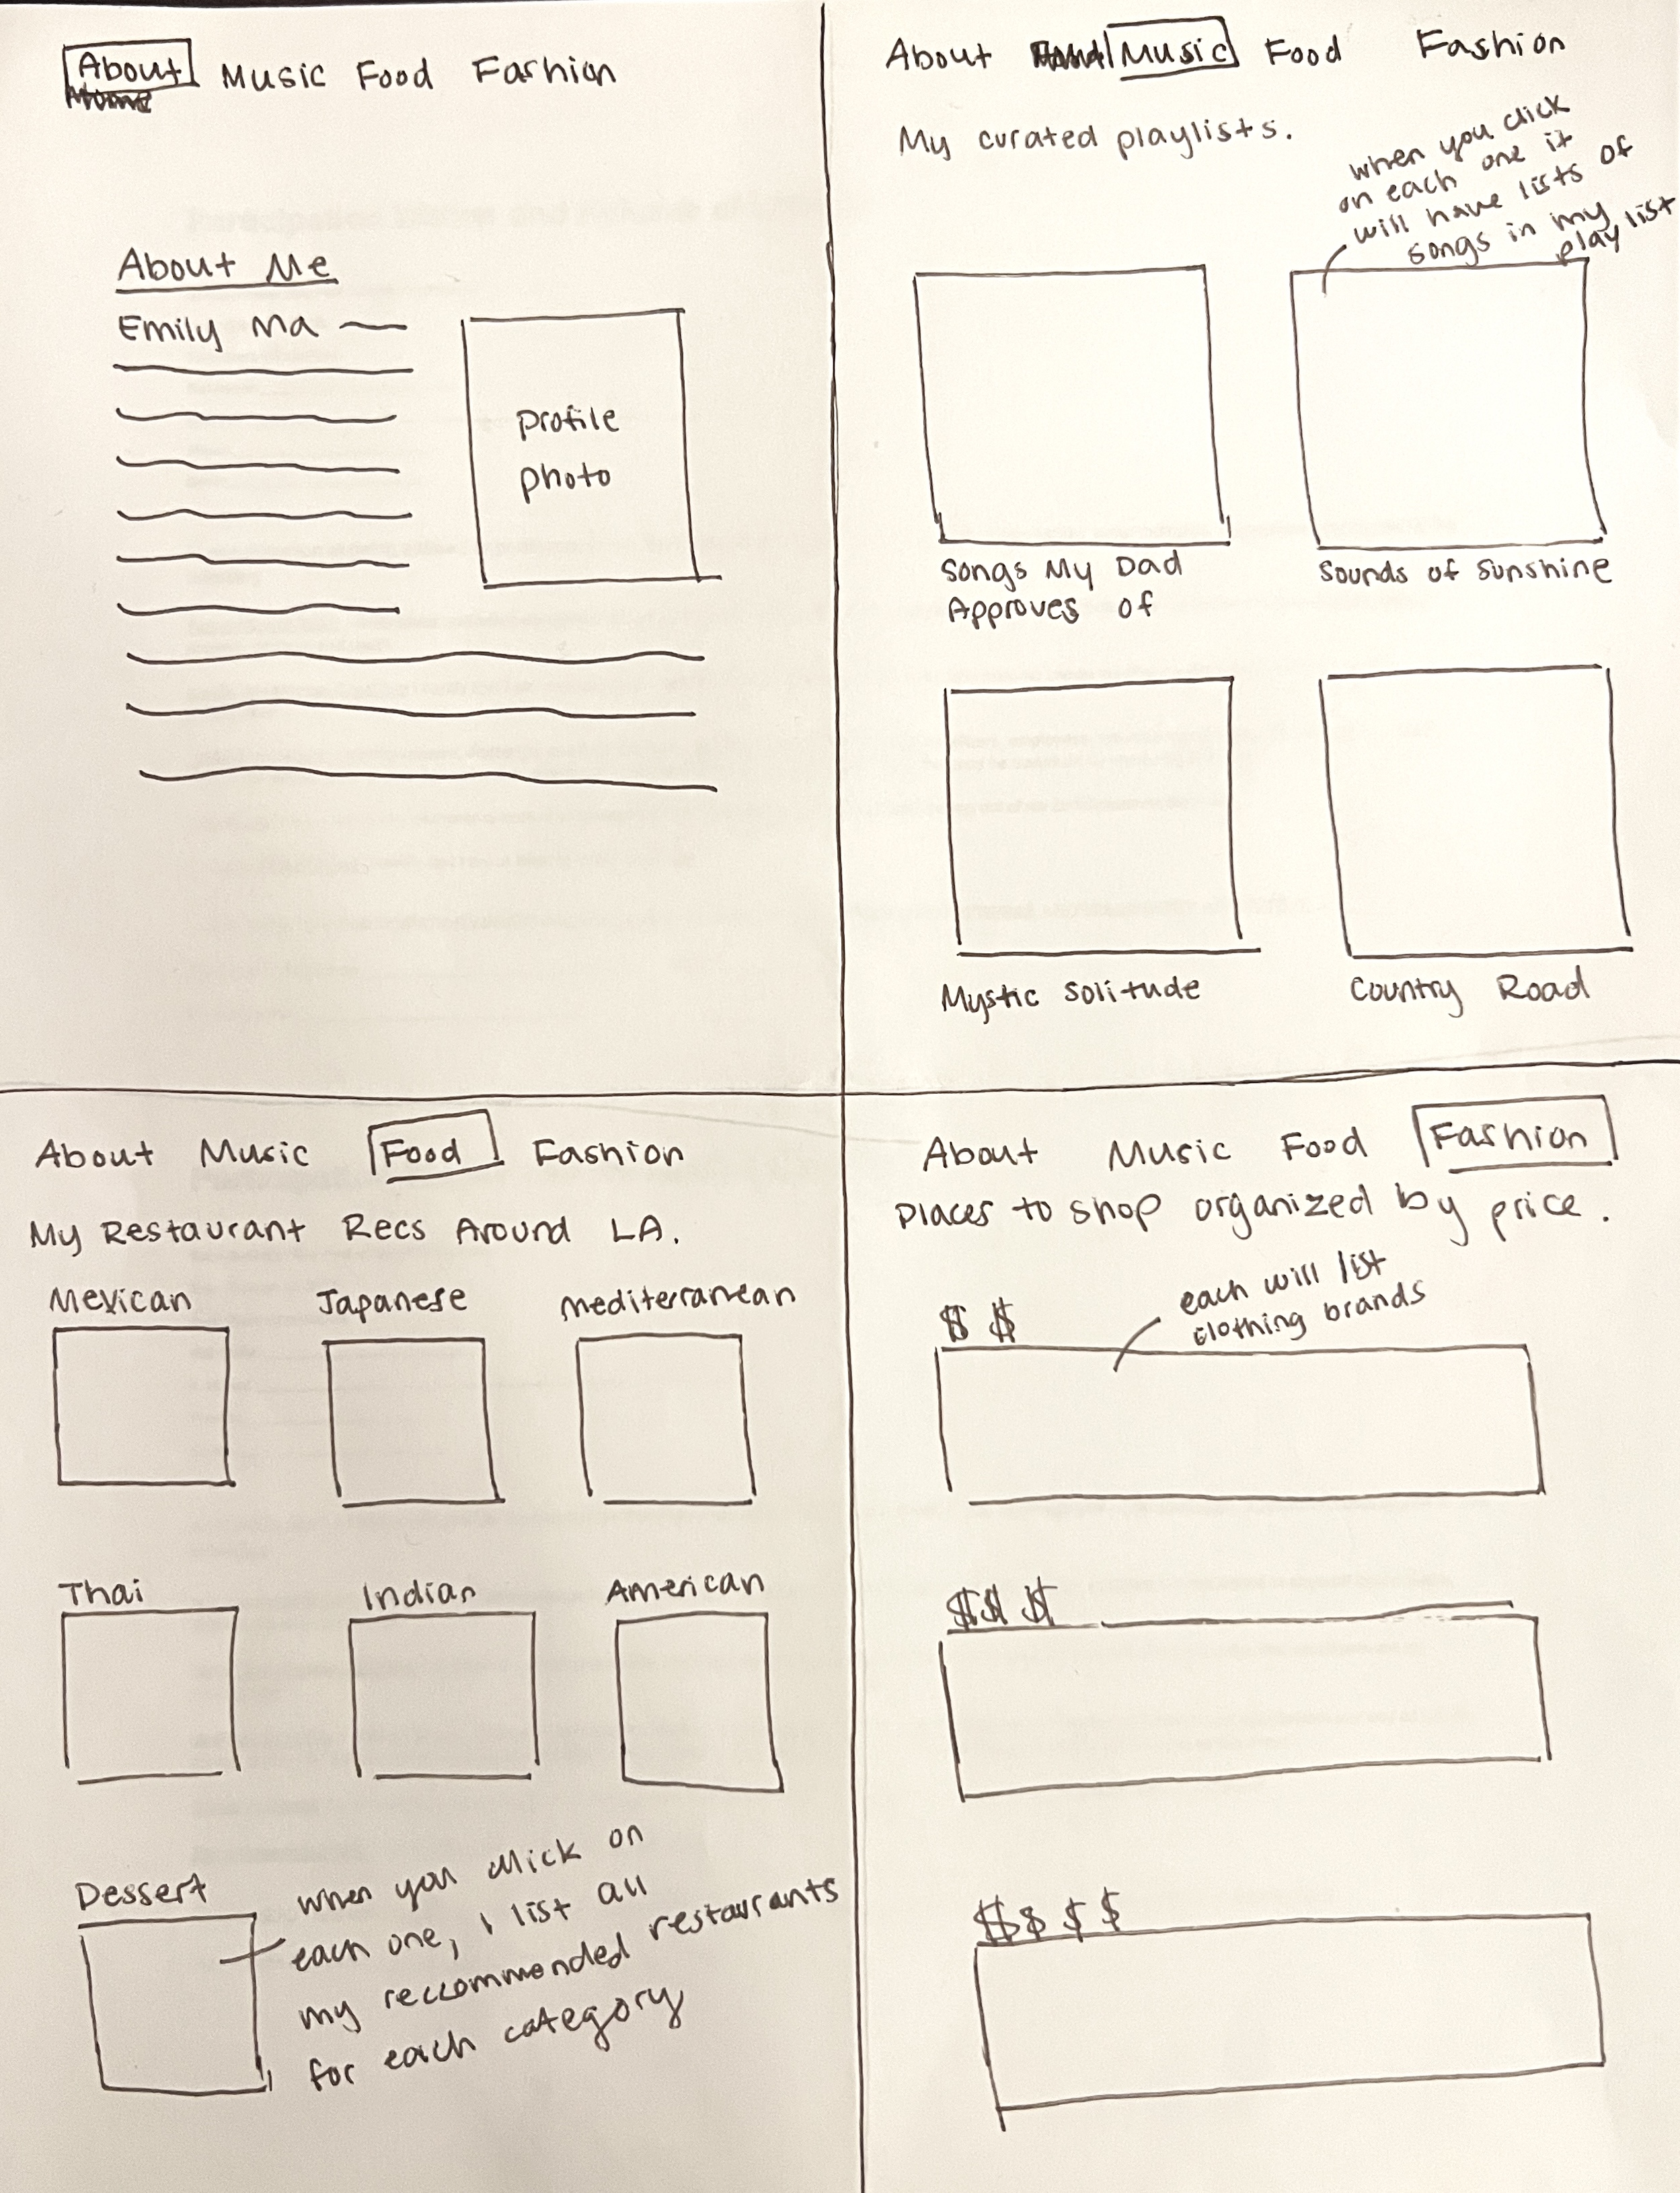 About Music Food Fashion
Home
About Me
Emily Ma
profile
photo
About Music Food Fashion
My curated playlists.
when you click
on each one it
will have lists of
songs in my
playlist
Songs My Dad
Approves of
Sounds of Sunshine
Mystic Solitude
Country Road
About Music Food Fashion
My Restaurant Recs Around LA.
Mexican Japanese Mediterranean
Thai Indian American
Dessert
when you click on
each one, I list all
my reccommended restaurants
for each category
About Music Food Fashion
Places to shop organized by price.
each will list
clothing brands
$ $
$$ $
$$ $ $